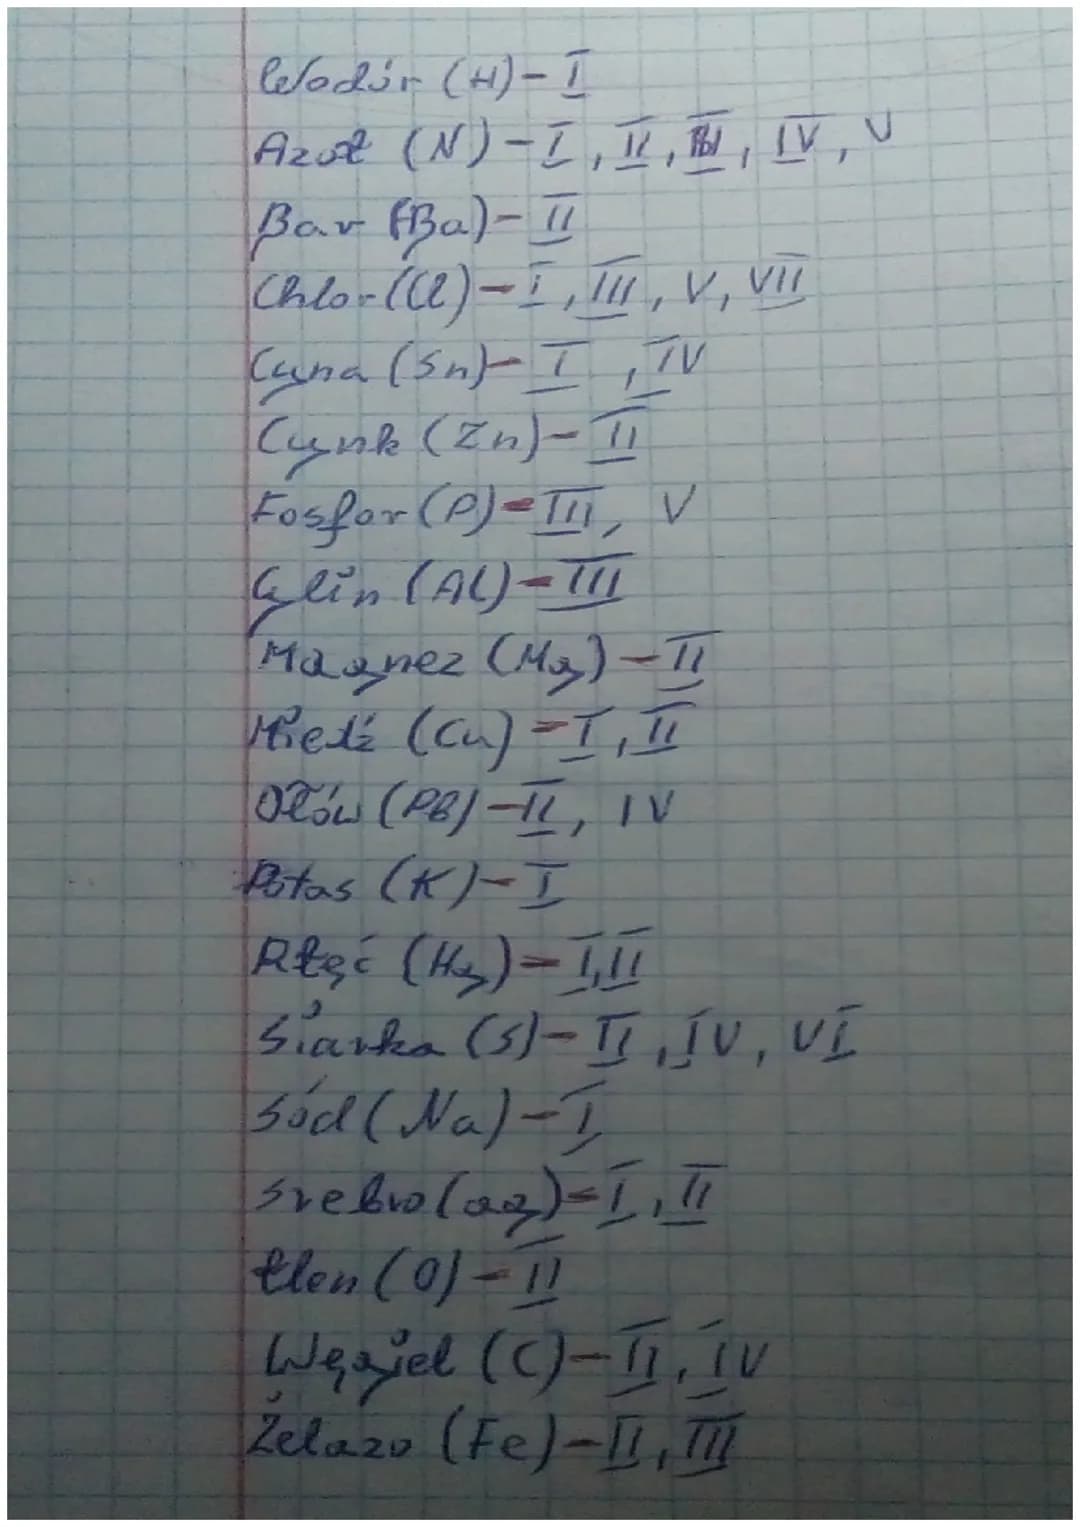 Wodór (H) - I
Azot (N) - I, II, III, IV, V
Bar (Ba) - II
Chlor (Cl) - I, III, V, VII
Cyna (Sn) - I, IV
Cynk (Zn) - II
Fosfor (P) - III, V
Glin (Al) - III
Magnez (Mg) - II
Miedź (Cu) - I, II
Ołów (PB) - II, IV
Potas (K) - I
Rtęć (Hg) - I, II
Siarka (S) - II, IV, VI
Sód (Na) - I
Srebro (ag) - I, II
tlen (O) - II
Węgiel (C) - II, IV
Żelazo (Fe) - II, III